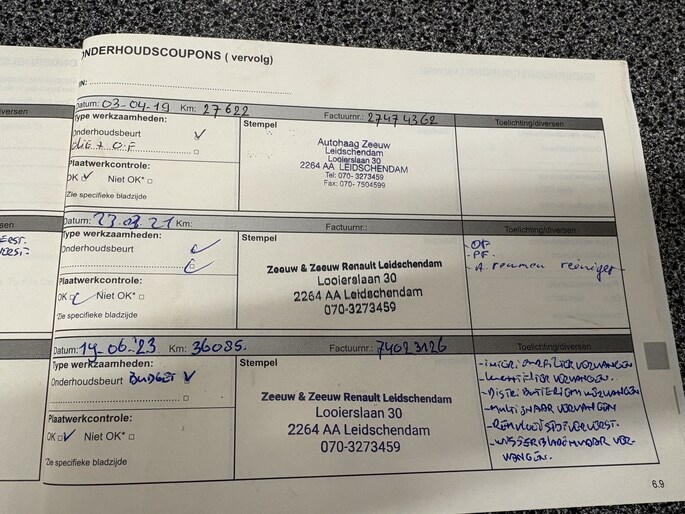 ONDERHOUDSCOUPONS ( vervolg)
IN:
Datum: 03-04-19 Km: 27622 Factuurnr.: 27474362
Type werkzaamheden: Stempel Toelichting/diversen
Onderhoudsbeurt
olie + O.F
Plaatwerkcontrole:
OK Niet OK*
*Zie specifieke bladzijde
Autohaag Zeeuw
Leidschendam
Looierslaan 30
2264 AA Leidschendam
Tel: 070- 3273459
Fax: 070- 7504599
Datum: Km: Factuurnr.:
Type werkzaamheden: Stempel Toelichting/diversen
Onderhoudsbeurt
Plaatwerkcontrole:
OK Niet OK*
*Zie specifieke bladzijde
Zeeuw & Zeeuw Renault Leidschendam
Looierslaan 30
2264 AA Leidschendam
070-3273459
- OF
- PF.
- A remmen reiniger
Datum: 19-06-'23 Km: 36085. Factuurnr.: 74023126
Type werkzaamheden: Stempel Toelichting/diversen
Onderhoudsbeurt BUDGET
Plaatwerkcontrole:
OK Niet OK*
*Zie specifieke bladzijde
Zeeuw & Zeeuw Renault Leidschendam
Looierslaan 30
2264 AA Leidschendam
070-3273459
- INTERIEURFILTER VERVANGEN
- LUCHTFILTER VERVANGEN.
- DISTRIBUTIERIEM VERVANGEN
- MULTISNAAR VERVANGEN
- REMVLOEISTOF VERVERST.
- WISSERBLADEN VOOR VER-
VANGEN.
6.9
diversen
ERST.